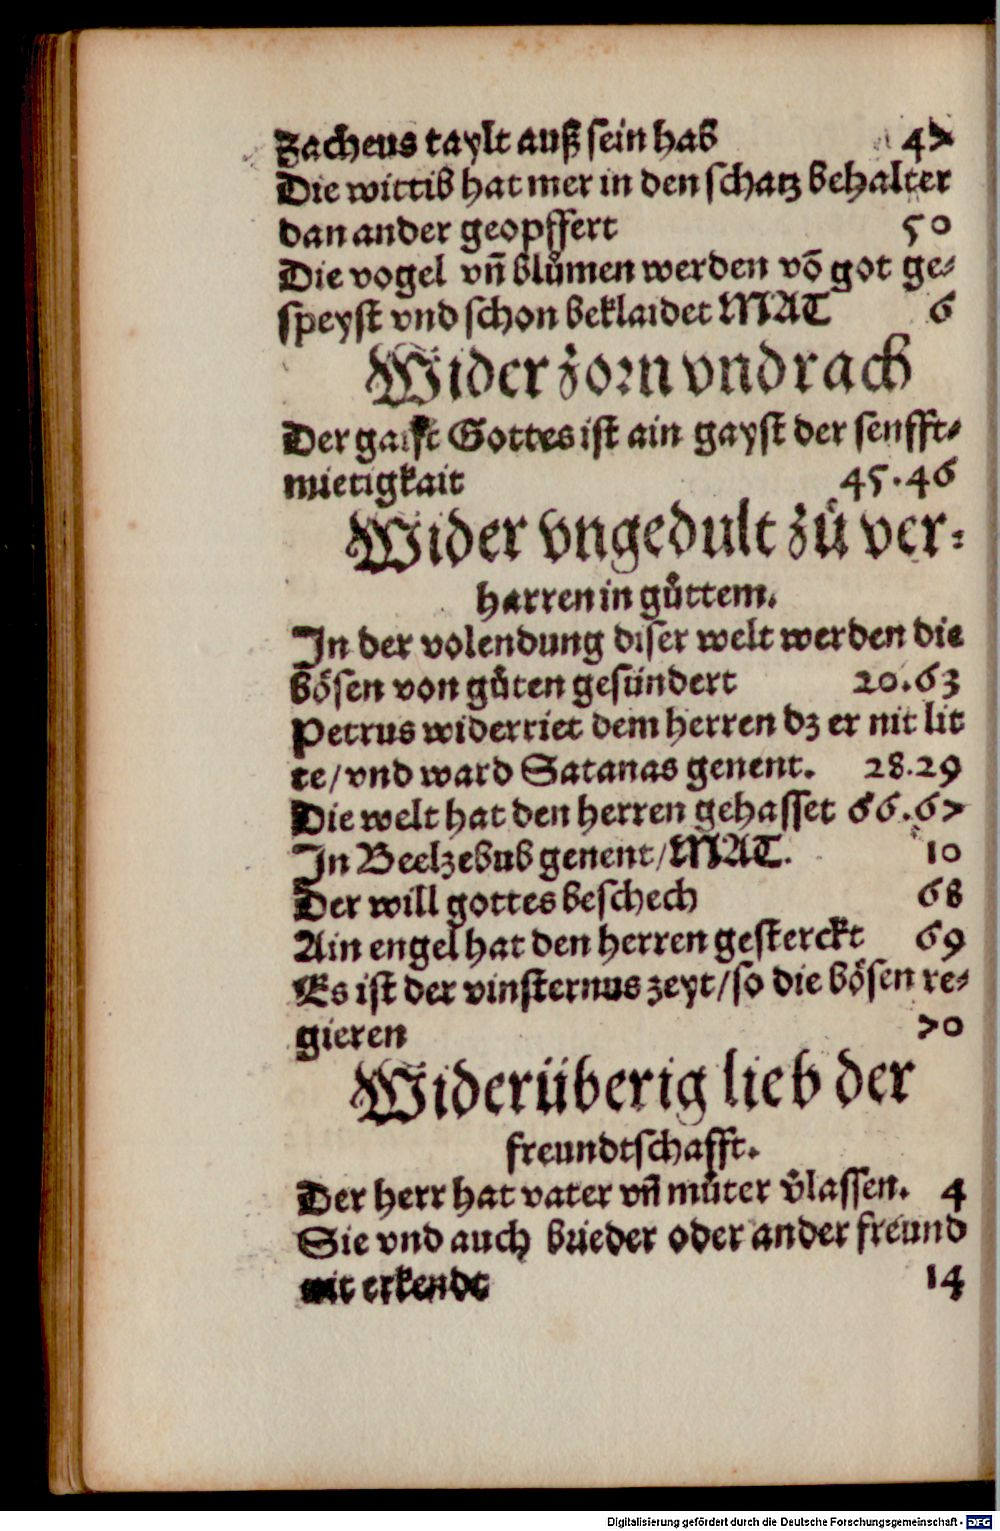 Zacheus taylt auß sein hab 47
Die wittib hat mer in den schatz behalter
dan ander geopffert 50
Die vogel vn̄ blůmen werden võ got ge⸗
speyst vnd schon beklaidet MAT 6
Wider zorn vnd rach
Der gaist Gottes ist ain gayst der senfft⸗
mietigkait 45.46
Wider vngedult zů ver⸗
harren in gůttem.
In der volendung diser welt werden die
bösen von gůten gesündert 20.63
Petrus widerriet dem herren dz er nit lit
te/vnd ward Satanas genent. 28.29
Die welt hat den herren gehasset 66.67
In Beelzebub genent/MAT. 10
Der will gottes beschech 68
Ain engel hat den herren gesterckt 69
Es ist der vinsternus zeyt/so die bösen re⸗
gieren 70
Wider überig lieb der
freundtschafft.
Der herr hat vater vn̄ můter v̄lassen. 4
Sie vnd auch brieder oder ander freund
nit erkendt 14
Digitalisierung gefördert durch die Deutsche Forschungsgemeinschaft - DFG